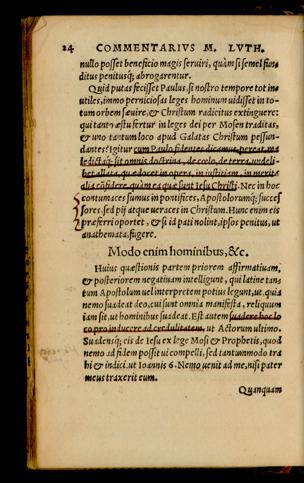 24 COMMENTARIVS M. LVTH.
nullo posset beneficio magis seruiri, quàm si semel fun
ditus penitusq; abrogarentur.
Quid putas fecisset Paulus, si nostro tempore tot in-
utiles, immo perniciosas leges hominum uidisset in to-
tum orbem sæuire, & Christum radicitus extinguere:
qui tanto æstu fertur in leges dei per Mosen traditas,
& uno tantum loco apud Galatas Christum pessun-
dantes? Igitur cum Paulo fidentes dicamus, pereat, ma
ledictaq; sit omnis doctrina, de cœlo, de terra, undeli-
bet allata, quæ docet in opera, in iustitiam, in merita
alia cōfidere, quàm ea quæ sunt Iesu Christi. Nec in hoc
contumaces sumus in pontifices, Apostolorumq; succes
sores, sed pij atque ueraces in Christum. Hunc enim eis
præferri oportet, & si id pati nolint, ipsos penitus, ut
anathemata, fugere.
Modo enim hominibus, &c.
Huius quæstionis partem priorem affirmatiuam,
& posteriorem negatiuam intelligunt, qui latine tan
tum Apostolum uel interpretem potius legunt, ut. quia
nemo suadeat deo, cui sunt omnia manifesta, reliquum
iam sit, ut hominibus suadeat. Est autem suadere hoc lo
co pro inducere ad credulitatem, ut Actorum ultimo.
Suadensq; eis de Iesu ex lege Mosi & Prophetis, quod
nemo ad fidem possit ui compelli, sed tantummodo tra
hi & indici, ut Ioannis 6. Nemo uenit ad me, nisi pater
meus traxerit eum.
Quanquam